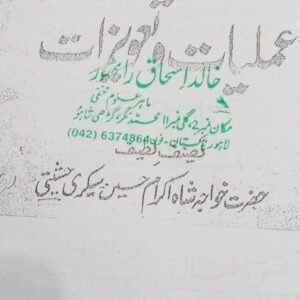 عملیات و تعویذات
خالد اسحاق راٹھور
ماہر علوم مخفی
مکان نمبر 2، گلی نمبر 11 محمد نگر، گڑھی شاہو
لاہور، پاکستان - فون (042) 6374864
تصنیف لطیف
حضرت خواجہ شاہ اکرام حسین سیکری چشتی